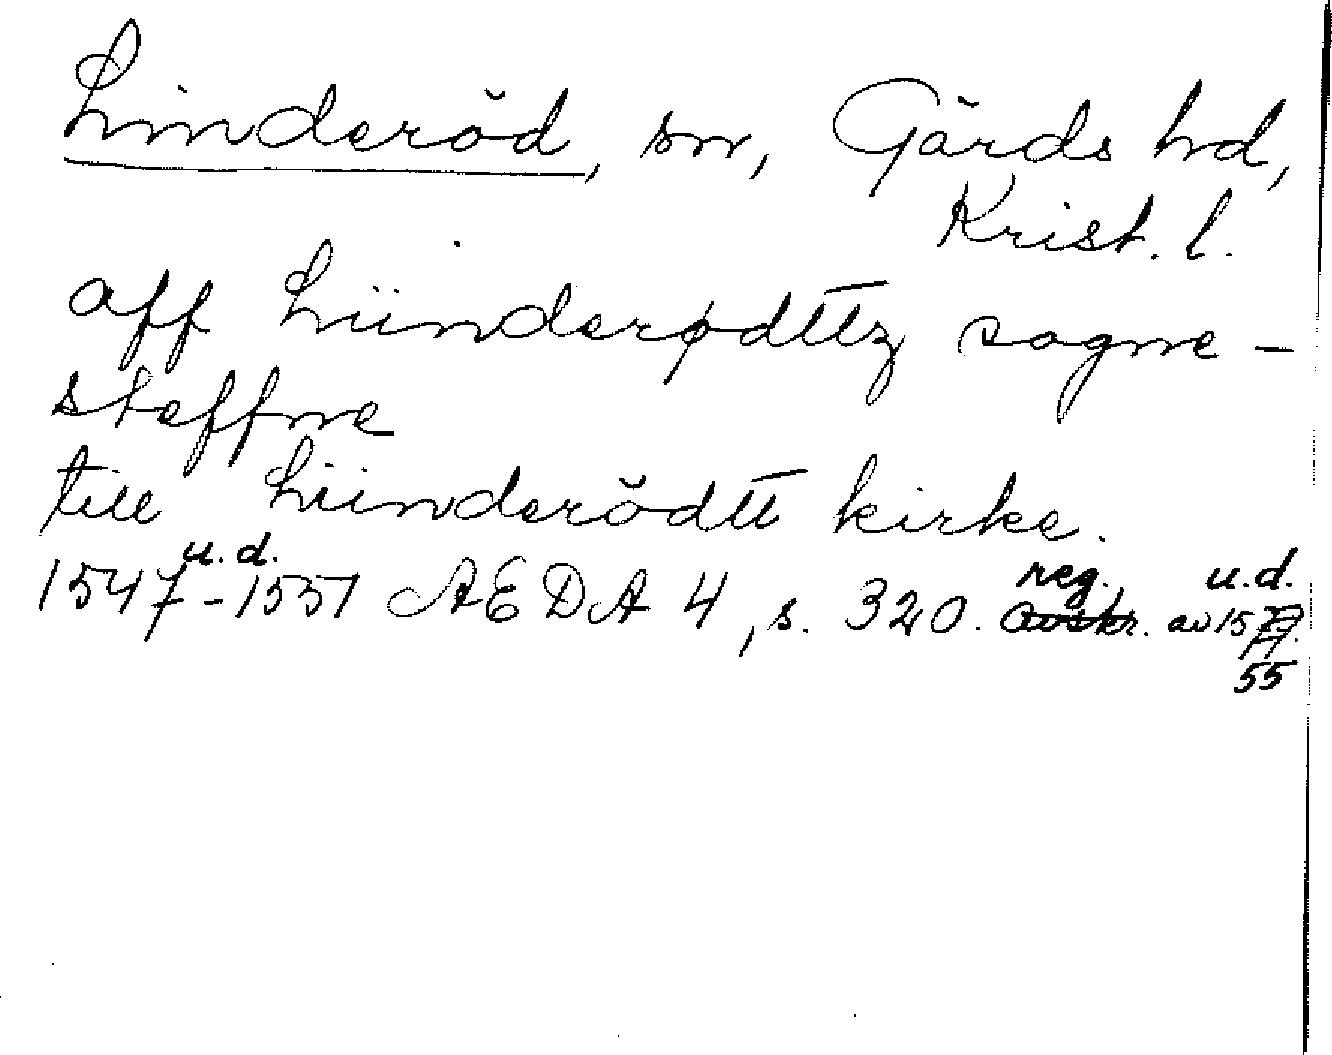 Linderöd, sn, Gärds hd,
Krist. l.
aff Liinderødttz sogne-
steffne
till Liinderödtt kirke.
u.d. reg. u.d.
1547-1551 AEDA 4, s. 320. avskr. av 1577.
55